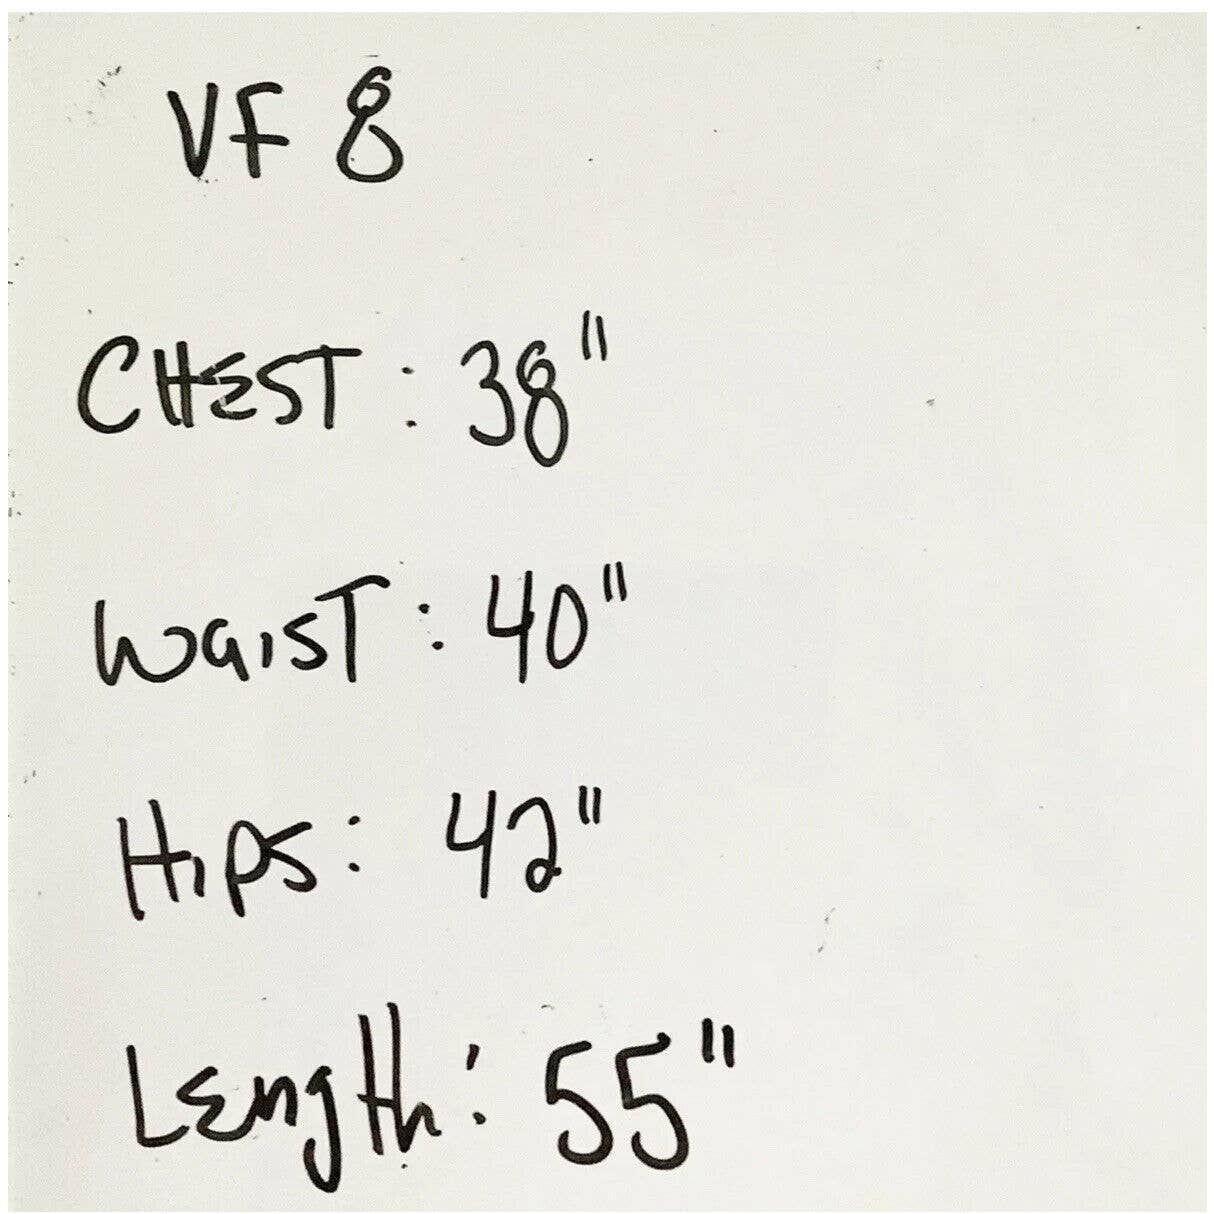 VF 8
CHEST: 38"
WaisT: 40"
Hips: 42"
Length: 55"